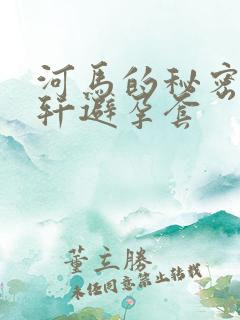 河马的秘密
轩避孕套
董立勝
未经同意禁止转载